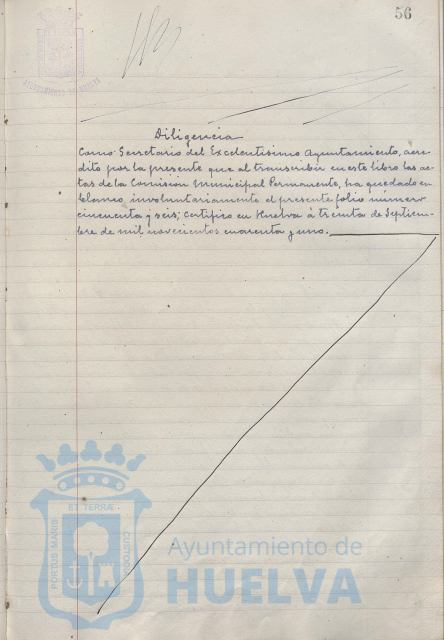 56
AYUNTAMIENTO DE HUELVA
Diligencia
Como Secretario del Excelentisimo Ayuntamiento, acre-
dito por la presente que al transcribir en este libro las ac-
tas de la Comision Municipal Permanente, ha quedado en
blanco, involuntariamente el presente folio número
cincuenta y seis; certifico en Huelva á treinta de Septiem-
bre de mil novecientos cuarenta y uno.
PORTUS MARIS ET TERRÆ CUSTODIA
Ayuntamiento de
HUELVA